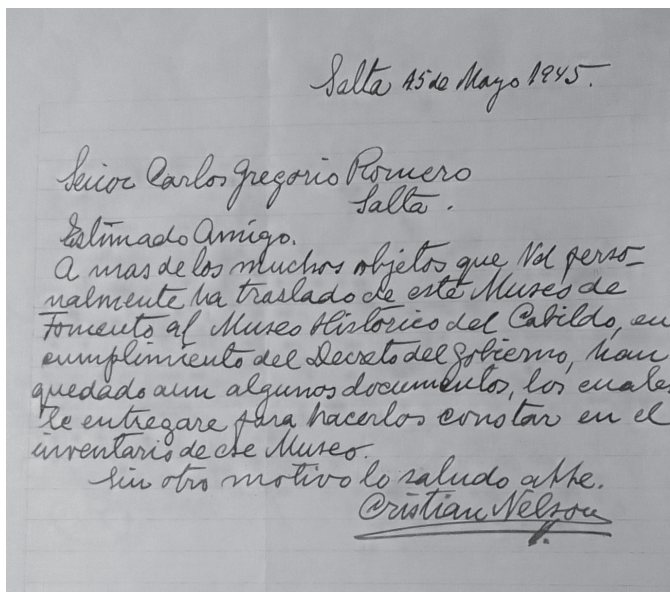 Salta 15 de Mayo 1945.
Señor Carlos Gregorio Romero
Salta.
Estimado Amigo.
A mas de los muchos objetos que Vd perso-
nalmente ha traslado de este Museo de
Fomento al Museo Histórico del Cabildo, en
cumplimiento del Decreto del Gobierno, han
quedado aun algunos documentos, los cuales
le entregare para hacerlos constar en el
inventario de ese Museo.
Sin otro motivo lo saludo atte.
Cristian Nelson